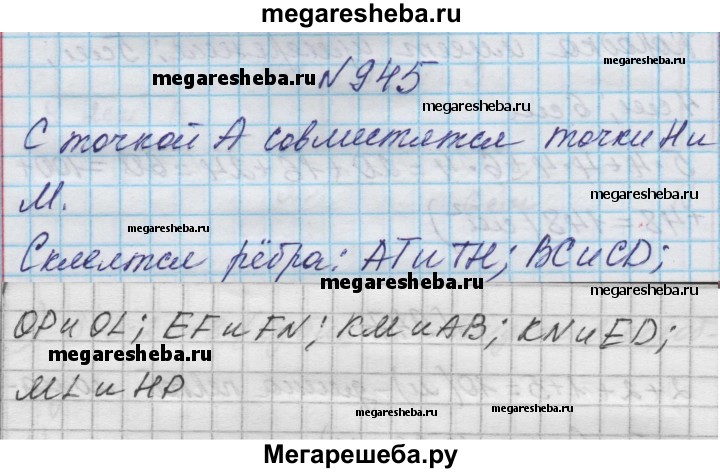 megaresheba.ru
№945
megaresheba.ru
megaresheba.ru
С точкой А совместятся точки Н и
megaresheba.ru
М.
megaresheba.ru
megaresheba.ru
Склеятся рёбра: АТ и ТН; ВС и CD;
megaresheba.ru
megaresheba.ru
ОР и OL; EF и FN; КМ и АВ; KN и ED;
megaresheba.ru
megaresheba.ru
ML и НР
megaresheba.ru
megaresheba.ru
Мегарешеба.ру